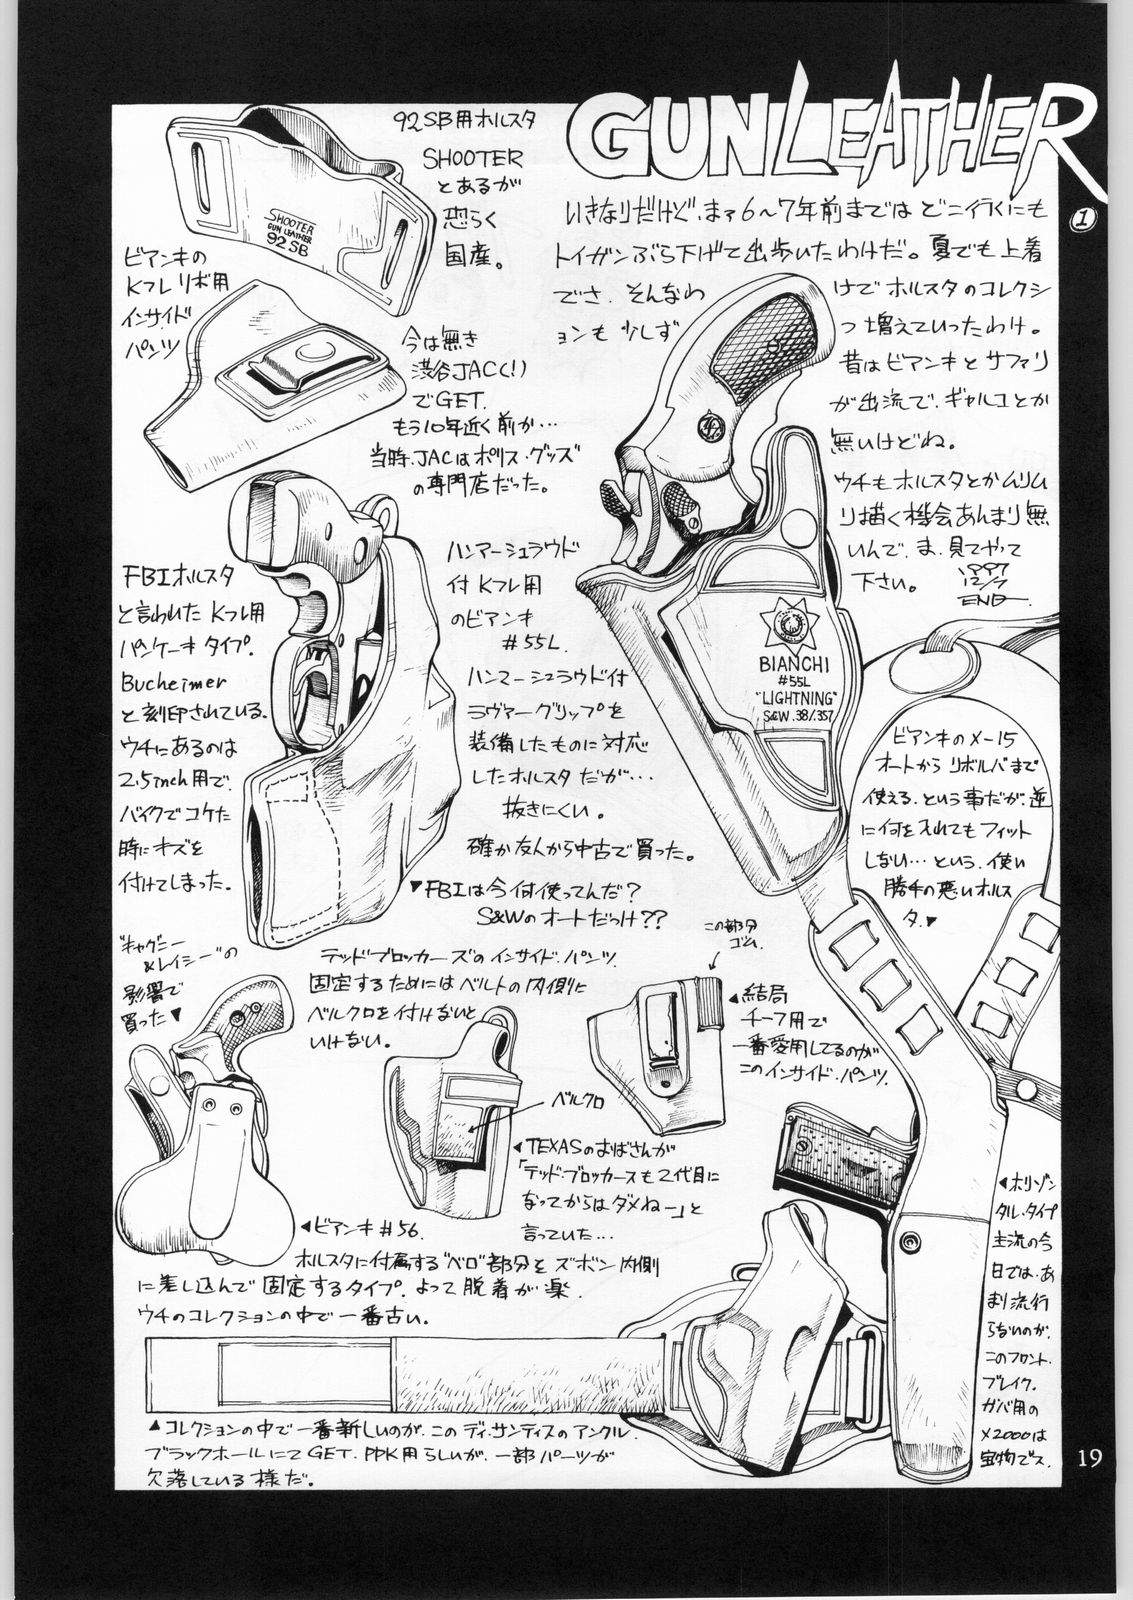 GUN LEATHER
①
いきなりだけど、まァ6〜7年前まではどこ行くにも
トイガンぶら下げて出歩いたわけだ。夏でも上着
でさ、そんなわ
けでホルスタのコレクシ
ョンも少しず
つ増えていったわけ。
昔はビアンキとサファリ
が出流で、ギャルコとか
無いけどね。
ウチもホルスタとかムリム
リ描く機会あんまり無
いんで、ま、見てやって
下さい。
1997
12/7
END
92SB用ホルスタ
SHOOTER
とあるが
恐らく
国産。
SHOOTER
GUN LEATHER
92SB
ビアンキの
Kフレ リボ用
インサイド
パンツ
今は無き
渋谷JAC(!)
でGET.
もう10年近く前か…
当時、JACはポリス・グッズ
の専門店だった。
FBIホルスタ
と言われたKフレ用
パンケーキタイプ。
Bucheimer
と刻印されている。
ウチにあるのは
2.5inch用で、
バイクでコケた
時にキズを
付けてしまった。
ハンマーシュラウド
付Kフレ用
のビアンキ
#55L
ハンマーシュラウド付
ラヴァーグリップを
装備したものに対応
したホルスタだが…
抜きにくい。
確か友人から中古で買った。
BIANCHI
#55L
"LIGHTNING"
S&W .38/.357
▼FBIは今何使ってんだ?
S&Wのオートだっけ??
ビアンキのX-15
オートからリボルバまで
使える、という事だが、逆
に何を入れてもフィット
しない…という、使い
勝手の悪いホルス
タ.▼
"キャグニー
&レイシー"の
影響で
買った▼
テッドブロッカーズのインサイド・パンツ.
固定するためにはベルトの内側に
ベルクロを付けないと
いけない。
この部分
ゴム.
◀結局
チーフ用で
一番愛用してるのが
このインサイド・パンツ.
ベルクロ
◀TEXASのおばさんが
「テッド・ブロッカースも2代目に
なってからはダメねー」と
言っていた…
◀ビアンキ#56.
ホルスタに付属する"ベロ"部分をズボン内側
に差し込んで固定するタイプ。よって脱着が楽.
ウチのコレクションの中で一番古い。
◀ホリゾン
タル・タイプ
主流の今
日では、あ
まり流行
らないのが、
このフロント.
ブレイク.
ガバ用の
X2000は
宝物デス.
▲コレクションの中で一番新しいのが、このディ・サンティスのアンクル.
ブラックホールにてGET. PPK用らしいが、一部パーツが
欠落している様だ。
19